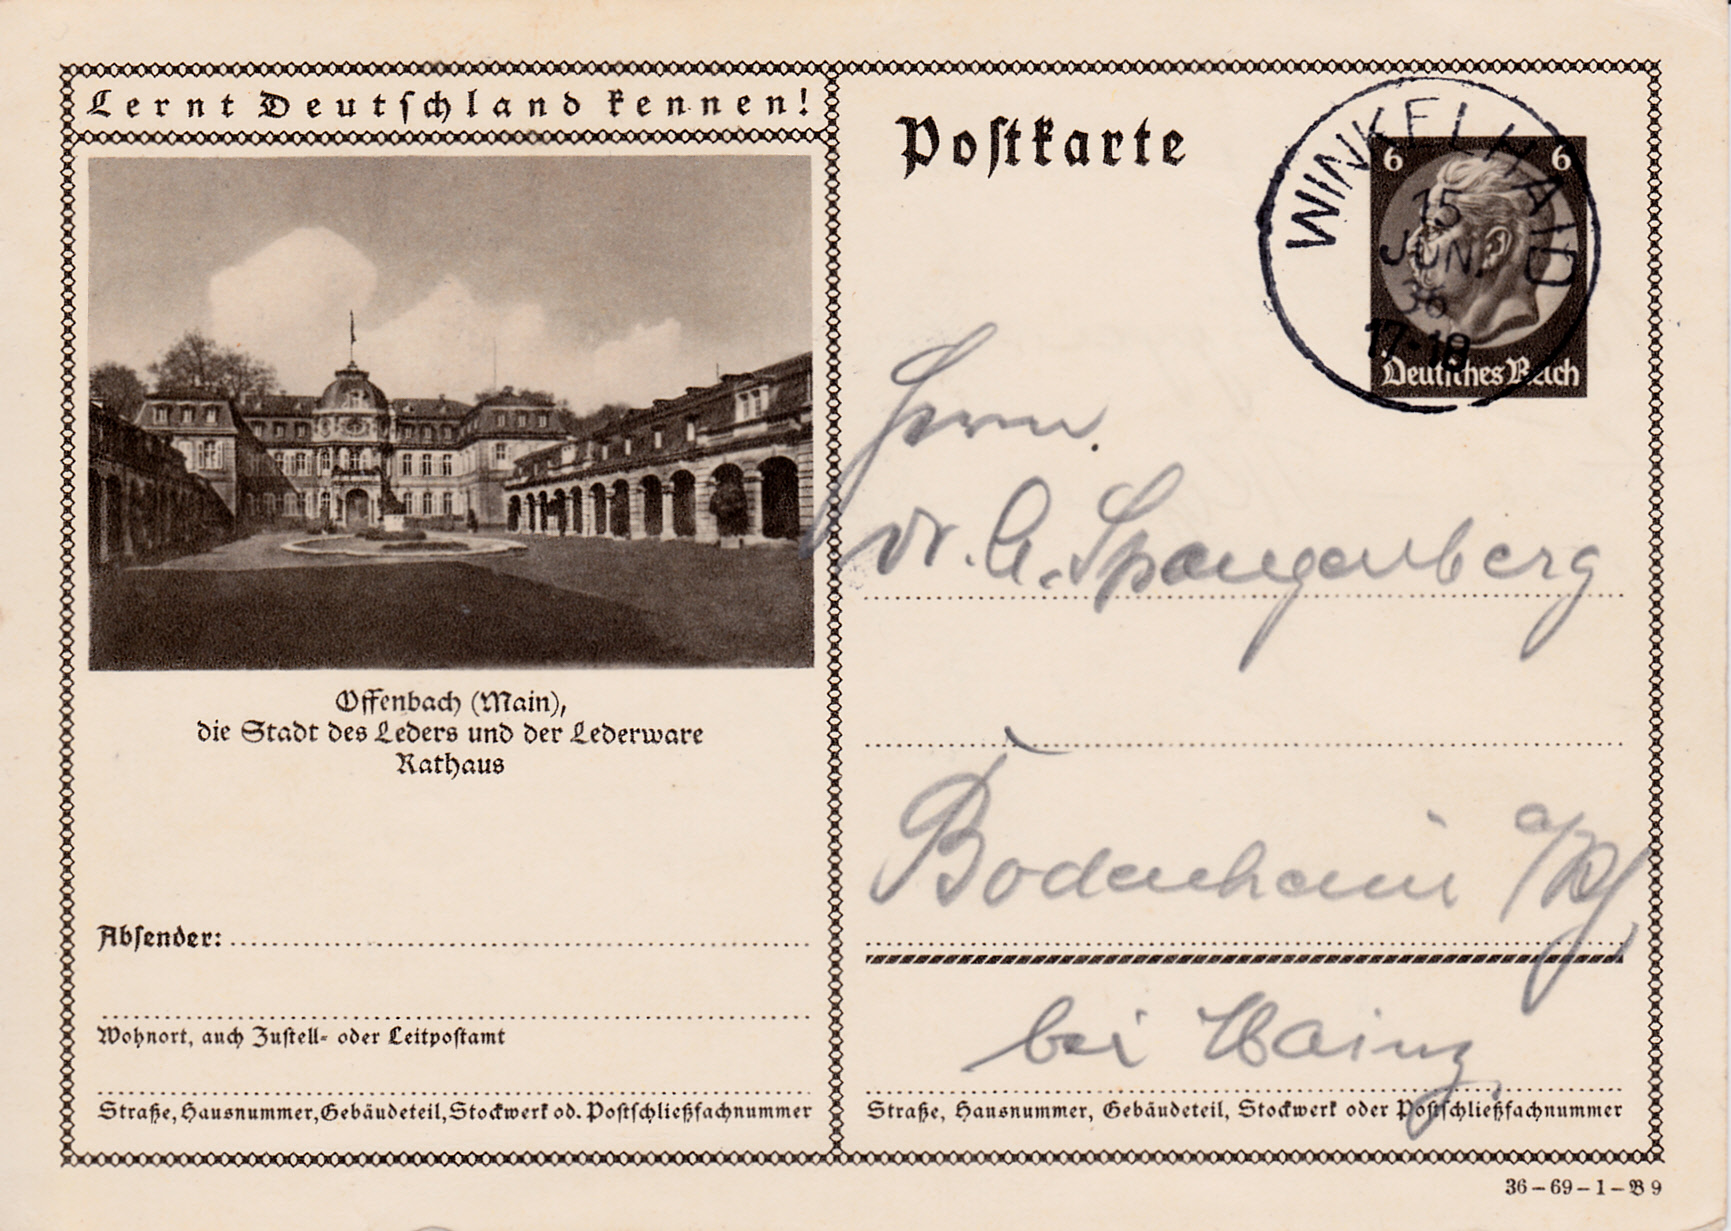 Lernt Deutschland kennen!
Offenbach (Main),
die Stadt des Leders und der Lederware
Rathaus
Absender:
Wohnort, auch Zustell- oder Leitpostamt
Straße, Hausnummer, Gebäudeteil, Stockwerk od. Postschließfachnummer
Postkarte
WINKELHAID
15
JUN.
36
17-18
6 6
Deutsches Reich
Herrn.
Dr. A. Spangenberg
Bodenheim a/Rh
bei Mainz,
Straße, Hausnummer, Gebäudeteil, Stockwerk oder Postschließfachnummer
36-69-1-B 9